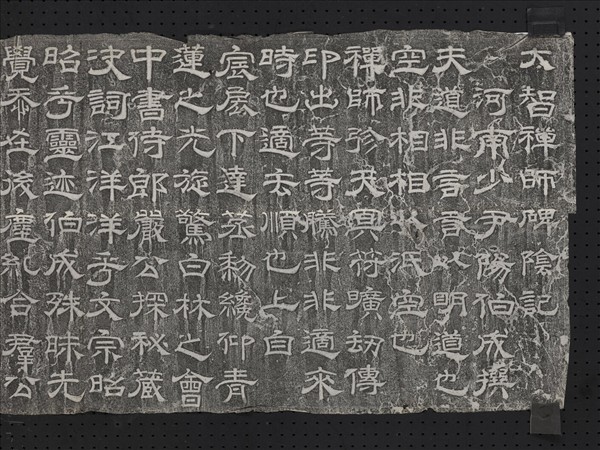 大智禪師碑陰記
河南少尹陽伯成撰
夫道非言言以明道也
空非相相以泯空也
禪師冥符曠劫傳
印出等等騰非非適來
時也適去順也上自
宸扆下達蒸黎繞仰青
蓮之光旋驚白林之會
中書侍郎嚴公探秘藏
決詞江洋洋乎文宗昭
昭乎靈迹伯成殊昧先
覺忝在後塵糺合羣公